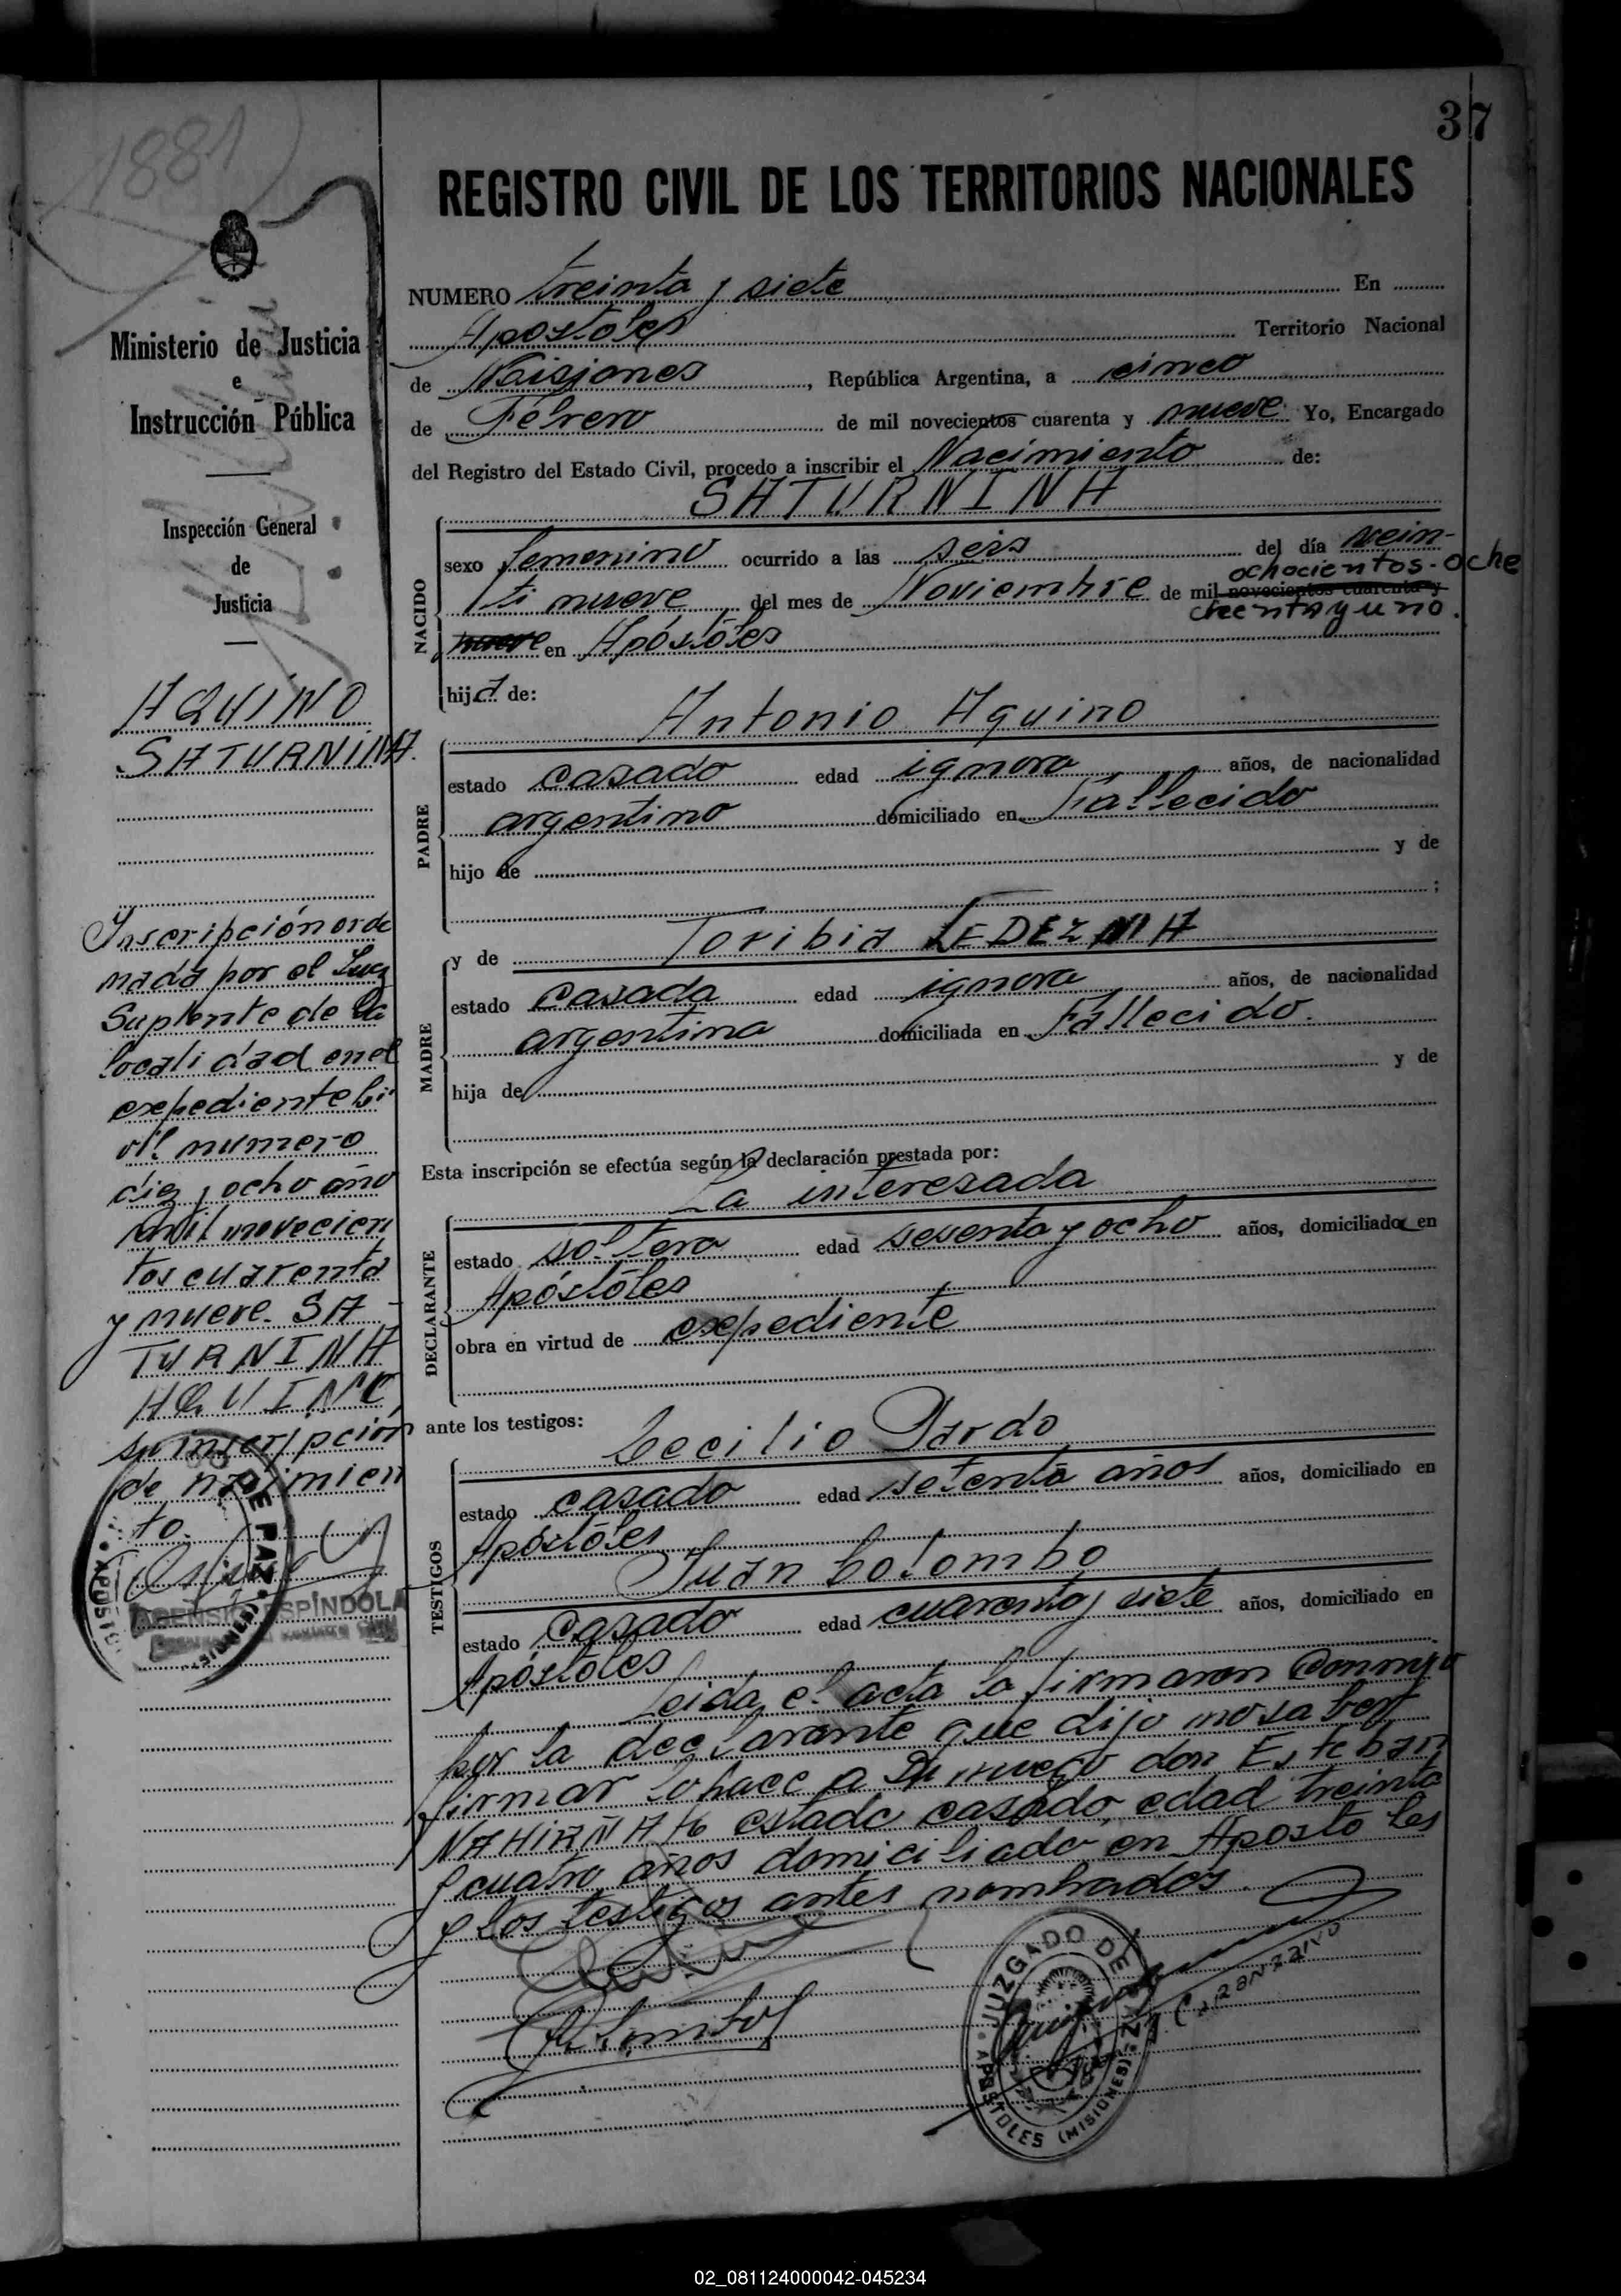 37
1881
REGISTRO CIVIL DE LOS TERRITORIOS NACIONALES
Ministerio de Justicia
e
Instrucción Pública
Inspección General
de
Justicia
AQUINO
SATURNINA.
Inscripción orde
nada por el Juez
Suplente de la
localidad en el
expediente Ci
vil numero
diez y ocho año
mil novecien
tos cuarenta
y nueve. SA-
TURNINA
AQUINO
su inscripción
de nacimien
to.
DE PAZ
APOSTOL
MISIONES
ASENSIO ESPÍNDOLA
NUMERO treinta y siete En
Apostoles Territorio Nacional
de Misiones, República Argentina, a cinco
de Febrero de mil novecientos cuarenta y nueve Yo, Encargado
del Registro del Estado Civil, procedo a inscribir el Nacimiento de:
SATURNINA
NACIDO
sexo femenino ocurrido a las seis del día vein-
ochocientos - oche
ti nueve del mes de Noviembre de mil novecientos cuarenta y
chentayuno.
nueve en Apóstoles
hija de:
Antonio Aquino
PADRE
estado casado edad ignora años, de nacionalidad
argentino domiciliado en Fallecido
hijo de y de
;
y de Toribia LEDEZMA
MADRE
estado casada edad ignora años, de nacionalidad
argentina domiciliada en Fallecido.
hija de y de
Esta inscripción se efectúa según la declaración prestada por:
La interesada
DECLARANTE
estado soltera edad sesenta y ocho años, domiciliada en
Apóstoles
obra en virtud de expediente
ante los testigos:
Cecilio Pardo
TESTIGOS
estado casado edad setenta años años, domiciliado en
Apóstoles
Juan Colombo
estado Casado edad cuarenta y siete años, domiciliado en
Apóstoles
Leida el acta la firmaron conmigo
por la declarante que dijo no saber
firmar lo hace a su ruego don Esteban
estado casado, edad treinta
y cuatro años domiciliado en Apostoles
y los testigos antes nombrados.
JUZGADO DE PAZ
APOSTOLES (MISIONES)
02_081124000042-045234